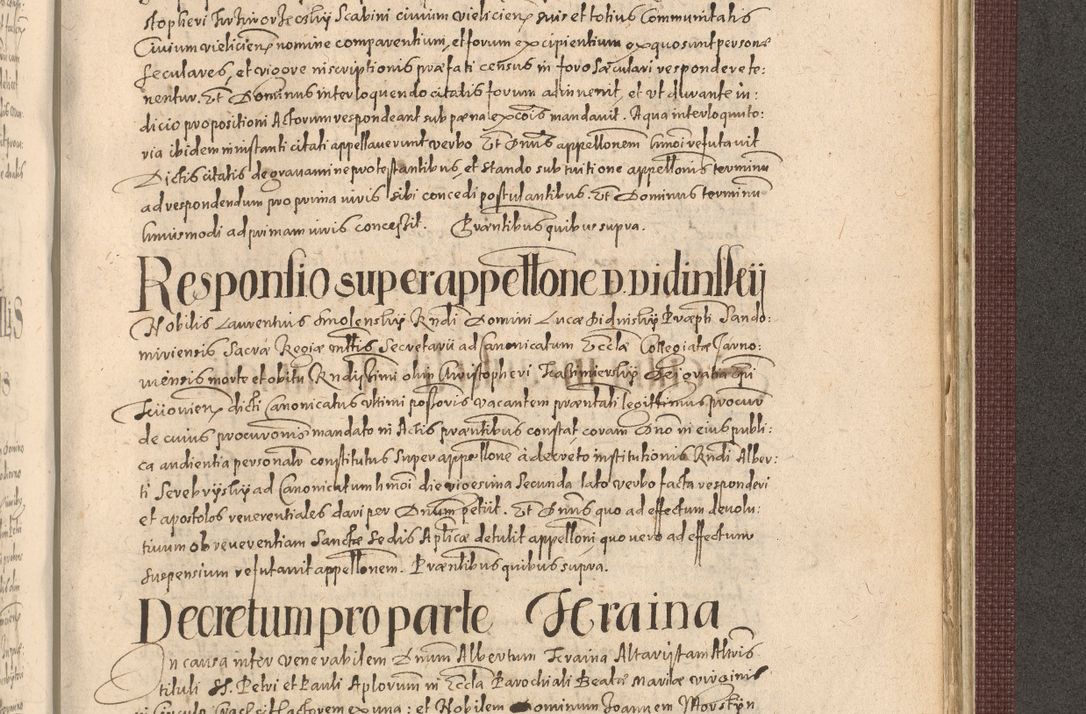 stopheri Jurkiwor Jecoskÿ Scabini civium vielicien suis et totius Communitatis
Civium vielicien nomine comparentium, et forum excipientium ex quo sunt personæ
seculares, et vigore niscriptionis præfati census in foro sæculari respondere te:
nentur. Et Dominus interloquendo citatis forum adinvenit, et ut durante in:
dicio propositioni Actorum respondeant sub pæna lexcois mandavit. A qua interloquuto:
ria ibidem in instanti citati appellaverunt verbo Et Dnus appellonem hmoi refutavit
Dictis citatis de gravamine protestantibus, et stando sub tuitione appellonis terminū
ad respondendum pro prima iuris sibi concedi postulantibus. Et Dominus terminū
huiusmodi ad primam iuris concessit. Præntibus quibus supra.
Responsio super appellone D. Vidinskÿ
Nobilis Laurentius Smolenskÿ Rndi Domini Lucæ Vidinskÿ Præpti Sando:
miriensis Sacræ Regiæ mttis Secretarii ad Canonicatum Eccłæ Collegiatæ Tarno:
uiensis morte et obitu Rndissimi olim Christopheri Kasimierskÿ Dei gratia Epi
Kiiovien dicti Canonicatus ultimi possoris vacantem præntati legittimus procur
de cuius procuronis mandato in Actis præntibus constat, coram Dno in eius publi:
ca audientia personalr constitutus super appellone a decreto institutionis Rndi Alber:
ti Serebrÿskÿ ad Canonicatum hmoi die vigesima secunda lato verbo facta responderi
et apostolos reverentiales dari per Dnum petiit. Et Dnus quo ad effectum devolu:
tivum ob reverentiam Sanctæ Sedis Aplicæ detulit appelloni quo vero ad effectum
suspensivum refutavit appellonem. Præntibus quibus supra.
Decretum pro parte Kraina
In causa inter venerabilem Dnum Albertum Kraina Altaristam Altris
tituli SS. Petri et Pauli Aplorum in Eccła Parochiali Beatæ Mariæ virginis
in Circulo Crac sit Actorem ex una: et Nobilem Dominum Joannem Morstÿn